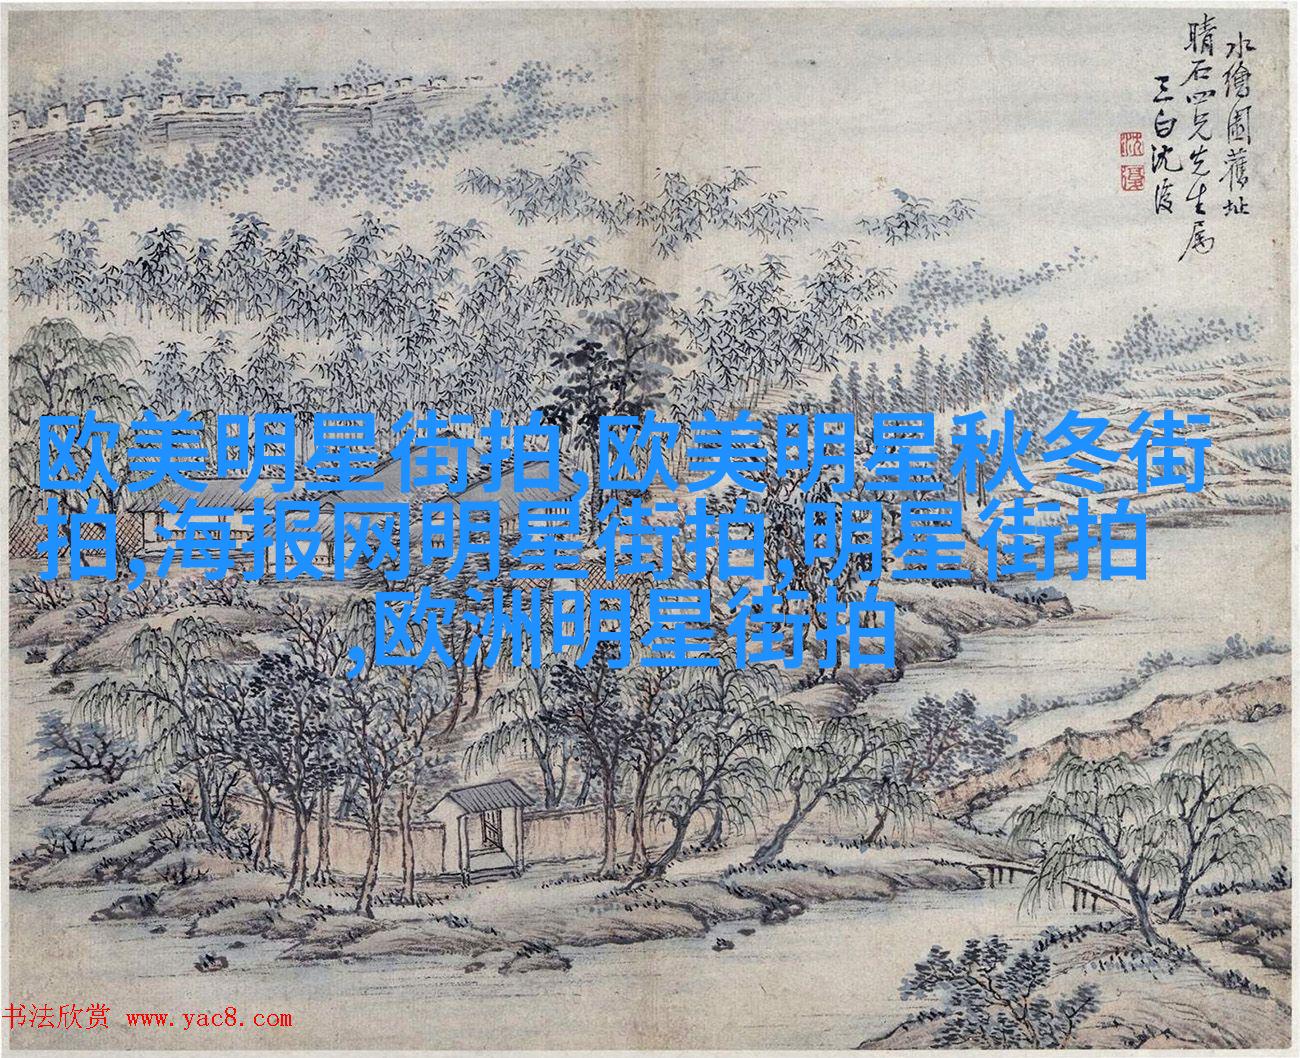 水繪園舊址
晴石四兄先生属
三白沈復
沈
復
欧美明星街拍,欧美明星秋冬街
拍,海报网明星街拍,明星街拍
,欧洲明星街拍
书法欣赏 www.yac8.com